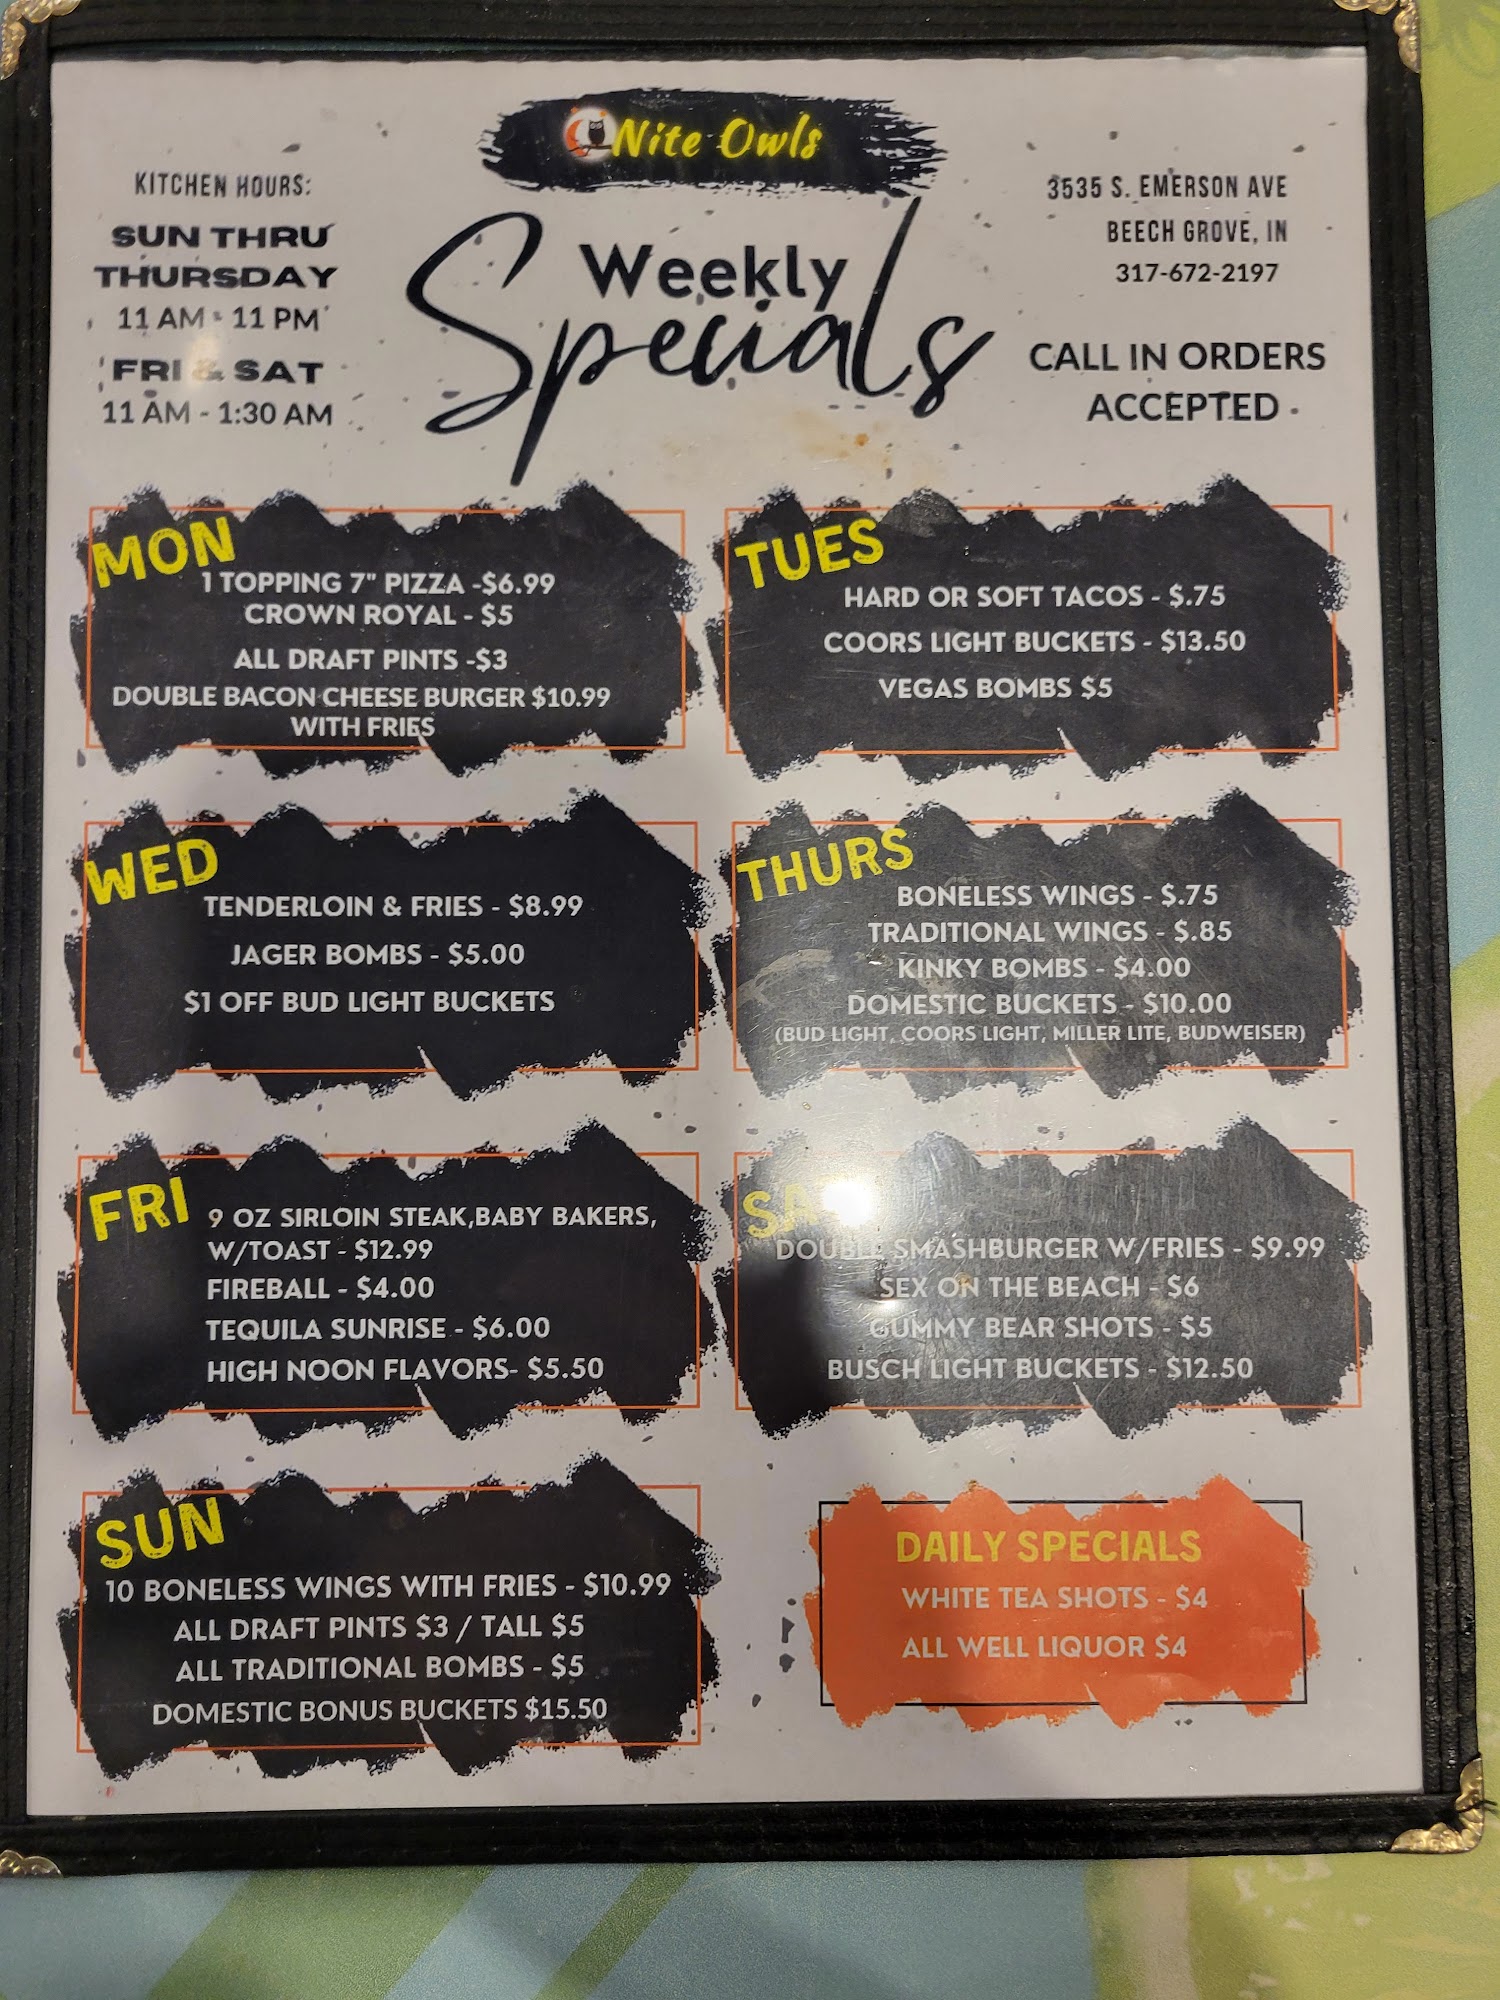 Nite Owls
Weekly
Specials
KITCHEN HOURS:
SUN THRU
THURSDAY
11 AM - 11 PM
FRI & SAT
11 AM - 1:30 AM
3535 S. EMERSON AVE
BEECH GROVE, IN
317-672-2197
CALL IN ORDERS
ACCEPTED
MON
1 TOPPING 7" PIZZA -$6.99
CROWN ROYAL - $5
ALL DRAFT PINTS -$3
DOUBLE BACON CHEESE BURGER $10.99
WITH FRIES
TUES
HARD OR SOFT TACOS - $.75
COORS LIGHT BUCKETS - $13.50
VEGAS BOMBS $5
WED
TENDERLOIN & FRIES - $8.99
JAGER BOMBS - $5.00
$1 OFF BUD LIGHT BUCKETS
THURS
BONELESS WINGS - $.75
TRADITIONAL WINGS - $.85
KINKY BOMBS - $4.00
DOMESTIC BUCKETS - $10.00
(BUD LIGHT, COORS LIGHT, MILLER LITE, BUDWEISER)
FRI
9 OZ SIRLOIN STEAK,BABY BAKERS,
W/TOAST - $12.99
FIREBALL - $4.00
TEQUILA SUNRISE - $6.00
HIGH NOON FLAVORS- $5.50
SAT
DOUBLE SMASHBURGER W/FRIES - $9.99
SEX ON THE BEACH - $6
GUMMY BEAR SHOTS - $5
BUSCH LIGHT BUCKETS - $12.50
SUN
10 BONELESS WINGS WITH FRIES - $10.99
ALL DRAFT PINTS $3 / TALL $5
ALL TRADITIONAL BOMBS - $5
DOMESTIC BONUS BUCKETS $15.50
DAILY SPECIALS
WHITE TEA SHOTS - $4
ALL WELL LIQUOR $4